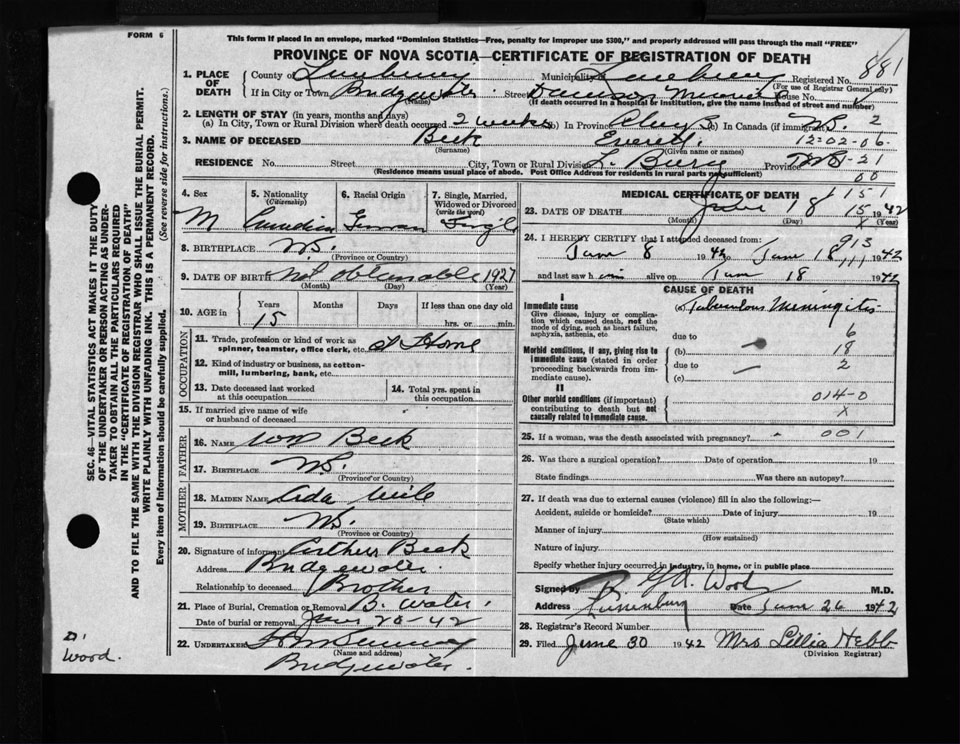 FORM 6
This form if placed in an envelope, marked "Dominion Statistics—Free, penalty for improper use $300," and properly addressed will pass through the mail "FREE"
PROVINCE OF NOVA SCOTIA—CERTIFICATE OF REGISTRATION OF DEATH
881
1. PLACE OF DEATH County of Lunenburg Municipality Lunenburg Registered No.
(For use of Registrar General only)
If in City or Town Bridgewater Street Dawson Memorial House No.
(Name) (If death occurred in a hospital or institution, give the name instead of street and number)
2. LENGTH OF STAY (in years, months and days)
(a) In City, Town or Rural Division where death occurred 2 weeks (b) In Province (c) In Canada (if immigrant) N.S. 2
3. NAME OF DECEASED Beck Everett 12-02-06.
(Surname) (Given name or names)
RESIDENCE No. Street City, Town or Rural Division Province -21
(Residence means usual place of abode. Post Office Address for residents in rural parts not sufficient) 00
4. Sex
M
5. Nationality
(Citizenship)
Canadian
6. Racial Origin
German
7. Single, Married, Widowed or Divorced
(write the word)
Single
8. BIRTHPLACE N.S.
(Province or Country)
9. DATE OF BIRTH Not obtainable 1927
(Month) (Day) (Year)
10. AGE in Years Months Days If less than one day old
15 hrs. or min.
OCCUPATION
11. Trade, profession or kind of work as spinner, teamster, office clerk, etc. at Home
12. Kind of industry or business, as cotton-mill, lumbering, bank, etc.
13. Date deceased last worked at this occupation
14. Total yrs. spent in this occupation
15. If married give name of wife or husband of deceased
FATHER
16. NAME Wm Beck
17. BIRTHPLACE N.S.
(Province or Country)
MOTHER
18. MAIDEN NAME Ada Wile
19. BIRTHPLACE N.S.
(Province or Country)
20. Signature of informant Arthur Beck
Address Bridgewater
Relationship to deceased Brother
21. Place of Burial, Cremation or Removal B. Water
Date of burial or removal June 20-42
22. UNDERTAKER
(Name and address)
Bridgewater.
MEDICAL CERTIFICATE OF DEATH 151
23. DATE OF DEATH June 18 15 1942
(Month) (Day) X
24. I HEREBY CERTIFY that I attended deceased from: 913
Jun 8 1942 to Jun 18 1942
and last saw him alive on Jun 18 1942
CAUSE OF DEATH
I
Immediate cause
Give disease, injury or complication which caused death, not the mode of dying, such as heart failure, asphyxia, asthenia, etc
(a) Tuberculous Meningitis
due to 6
Morbid conditions, if any, giving rise to immediate cause (stated in order proceeding backwards from immediate cause).
(b) 18
due to 2
(c)
II
Other morbid conditions (if important) contributing to death but not causally related to immediate cause.
014-0
X
25. If a woman, was the death associated with pregnancy? 001
26. Was there a surgical operation? Date of operation 19
State findings Was there an autopsy?
27. If death was due to external causes (violence) fill in also the following:—
Accident, suicide or homicide? Date of injury 19
(State which)
Manner of injury
(How sustained)
Nature of injury
Specify whether injury occurred in industry, in home, or in public place
Signed by G.A. Wood M.D.
Address Lunenburg Date Jun 26 1942
28. Registrar's Record Number
29. Filed June 30 1942 Mrs Lillia Hebb
(Division Registrar)
SEC. 46—VITAL STATISTICS ACT MAKES IT THE DUTY
OF THE UNDERTAKER OR PERSON ACTING AS UNDER-
TAKER TO OBTAIN ALL THE PARTICULARS REQUIRED
IN THE "CERTIFICATE OF REGISTRATION OF DEATH"
AND TO FILE THE SAME WITH THE DIVISION REGISTRAR WHO SHALL ISSUE THE BURIAL PERMIT.
WRITE PLAINLY WITH UNFADING INK. THIS IS A PERMANENT RECORD.
Every item of Information should be carefully supplied. (See reverse side for instructions.)
Dr
Wood.